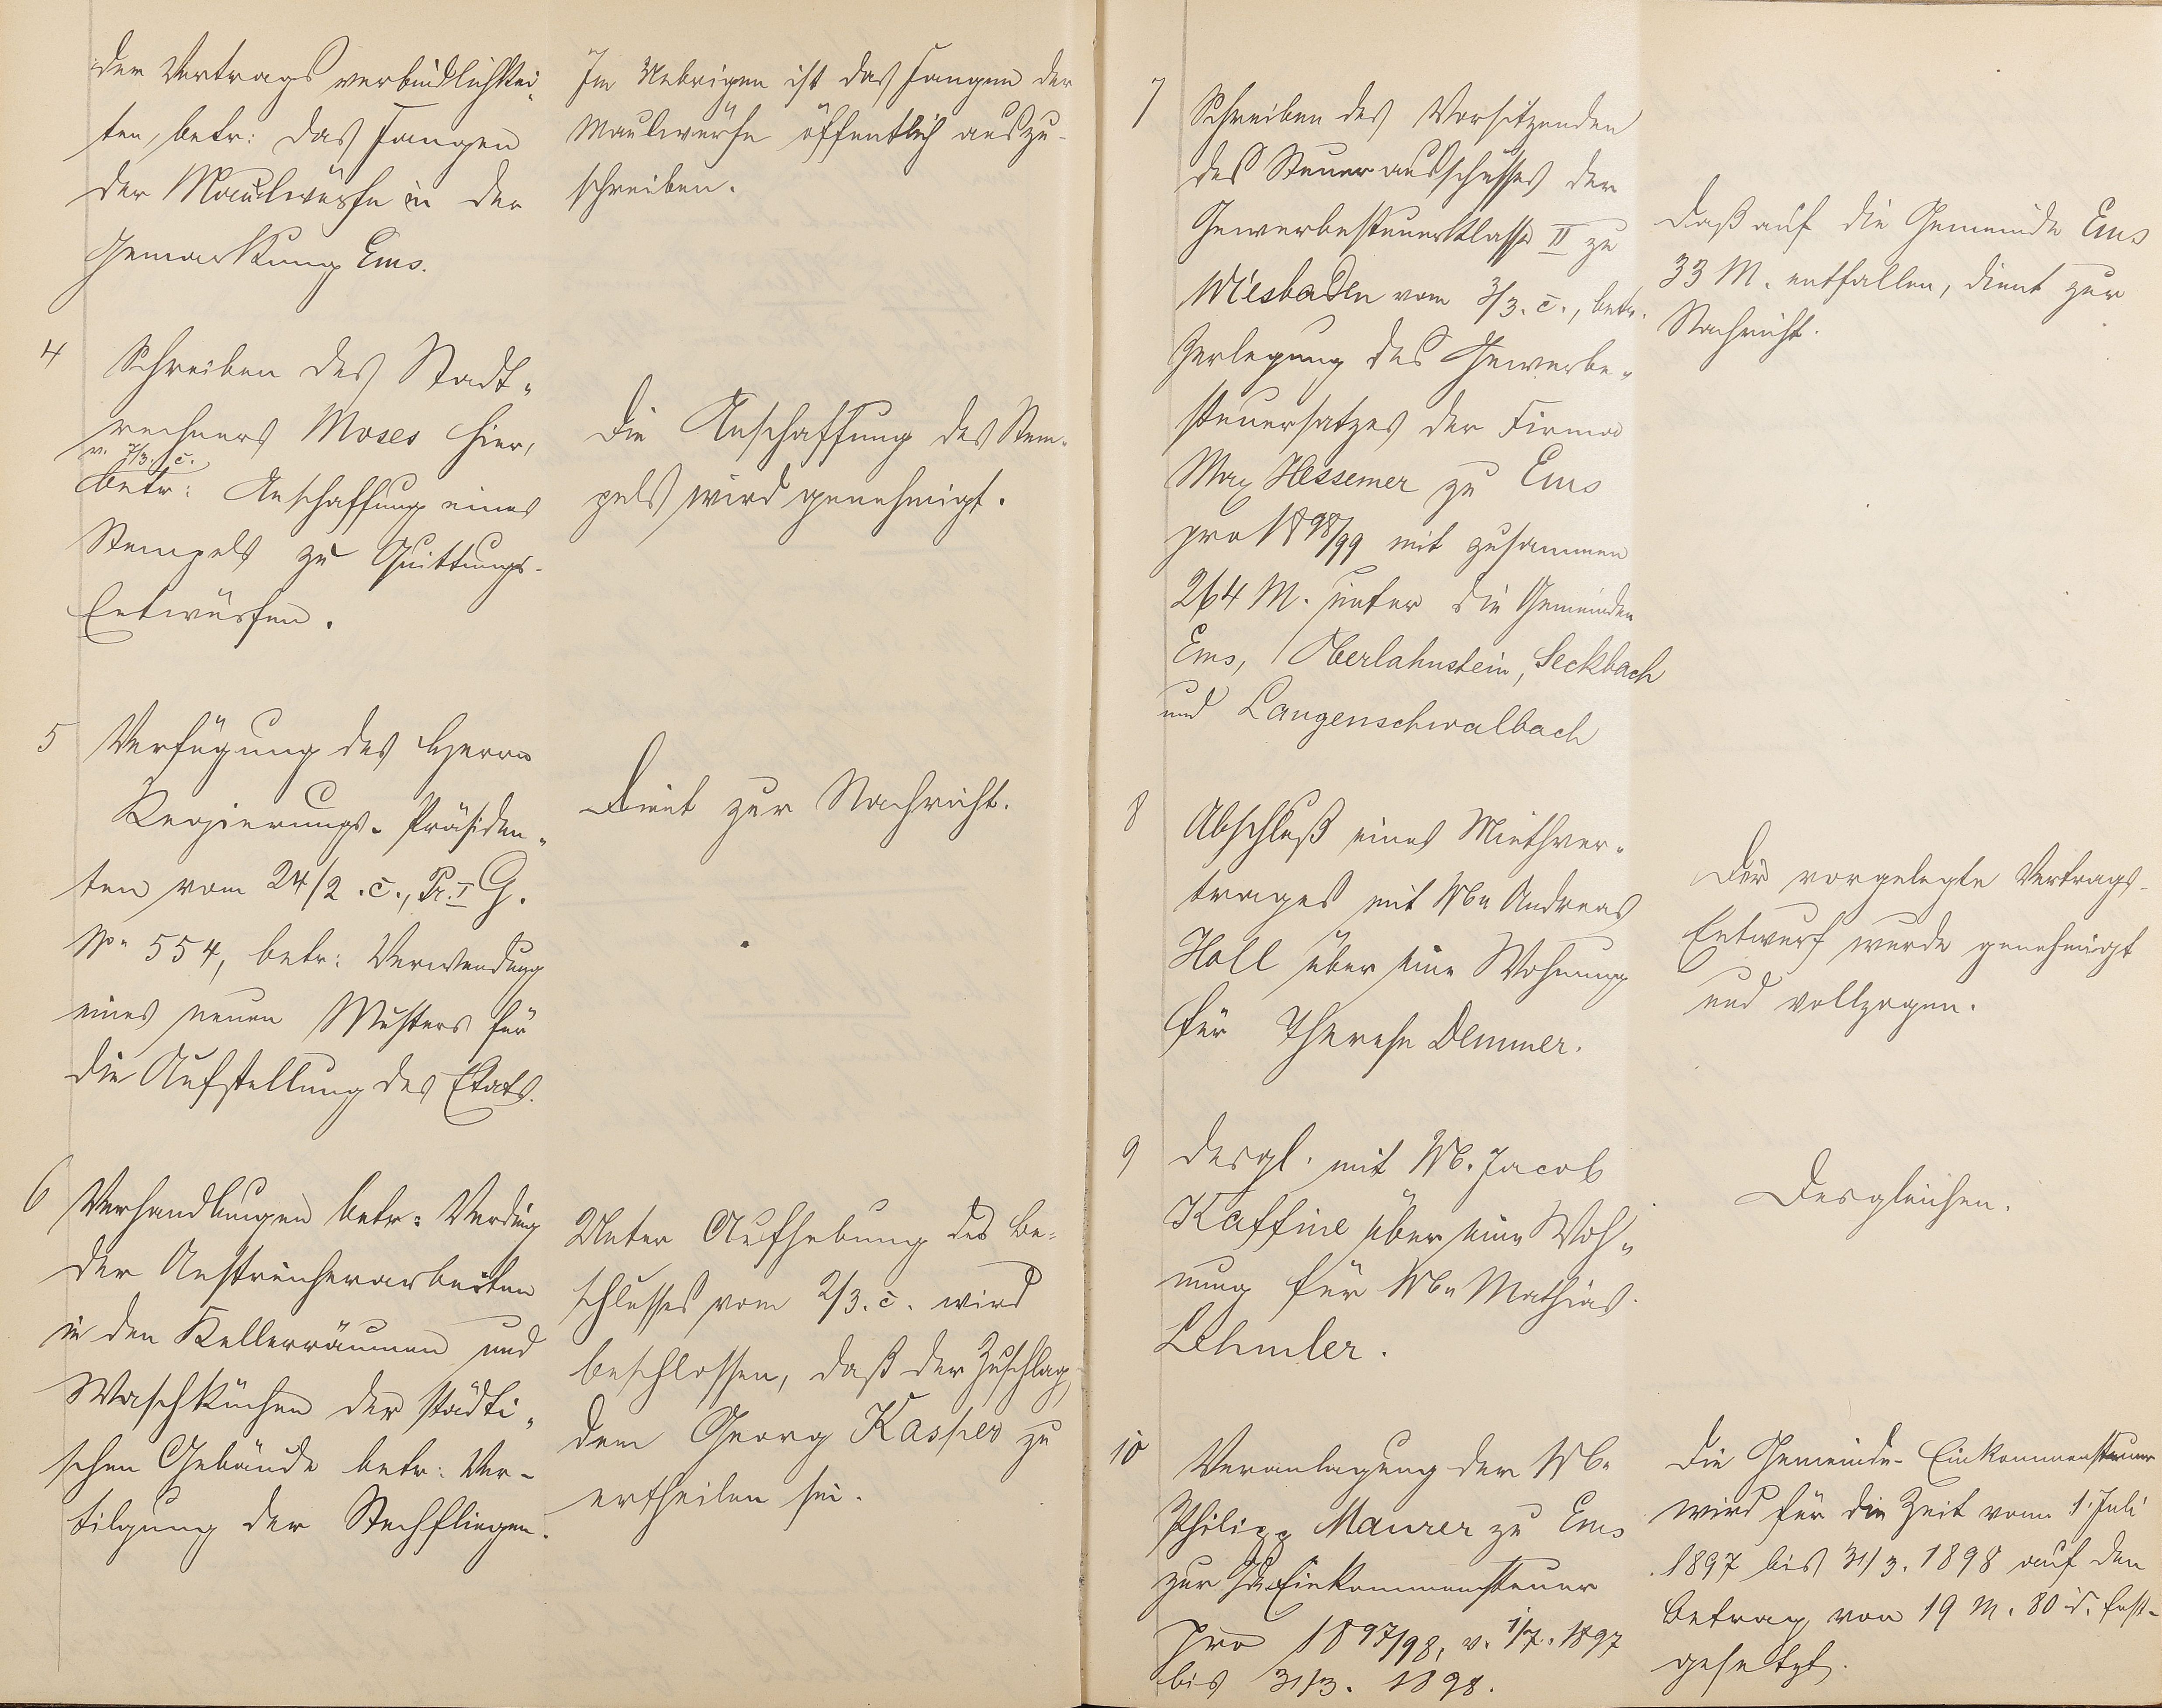 der Vertragsverbindlichkei-
ten, betr: das Fangen
der Maulwürfe in der
Gemarkung Ems.
Im Uebrigen ist das Fangen der
Maulwürfe öffentlich auszu-
schreiben.
4
Schreiben des Stadt-
rechners Moses hier,
v. 7/3. c.
betr: Anschaffung eines
Stempels zu Quittungs-
Entwürfen.
Die Anschaffung des Stem-
pels wird genehmigt.
5
Verfügung des Herrn
Regierungs-Präsiden-
ten vom 24/2. c., Pr. I G.
No 554, betr: Verwendung
eines neuen Musters für
die Aufstellung des Etats.
Dient zur Nachricht.
6
Verhandlungen betr: Verding
der Anstreicherarbeiten
in den Kellerräumen und
Waschküchen der städti-
schen Gebäude betr: Ver-
tilgung der Stechfliegen.
Unter Aufhebung des Be-
schlusses vom 2/3. c. wird
beschlossen, daß der Zuschlag
dem Georg Kasper zu
ertheilen sei.
7
Schreiben des Vorsitzenden
des Steuerausschusses der
Gewerbesteuerklasse II zu
Wiesbaden vom 3/3. c., betr.
Zerlegung des Gewerbe-
steuersatzes der Firma
Max Hessemer zu Ems
pro 1898/99 mit zusammen
264 M. unter die Gemeinden
Ems, Oberlahnstein, Seckbach
und Langenschwalbach
Daß auf die Gemeinde Ems
33 M. entfallen, dient zur
Nachricht.
8
Abschluß eines Miethver-
trages mit Ww Andreas
Holl über eine Wohnung
für Therese Demmer.
Der vorgelegte Vertrags-
Entwurf wurde genehmigt
und vollzogen.
9
desgl. mit W. Jacob
Kaffine über eine Woh-
nung für Ww Mathias
Lehmler.
Desgleichen.
10
Veranlagung der Ww
Philipp Maurer zu Ems
zur Einkommensteuer
pro 1897/98, v. 1/7. 1897
bis 31/3. 1898.
Die Gemeinde-Einkommensteuer
wird für die Zeit vom 1. Juli
1897 bis 31/3. 1898 auf den
Betrag von 19 M. 80 d. fest-
gesetzt.